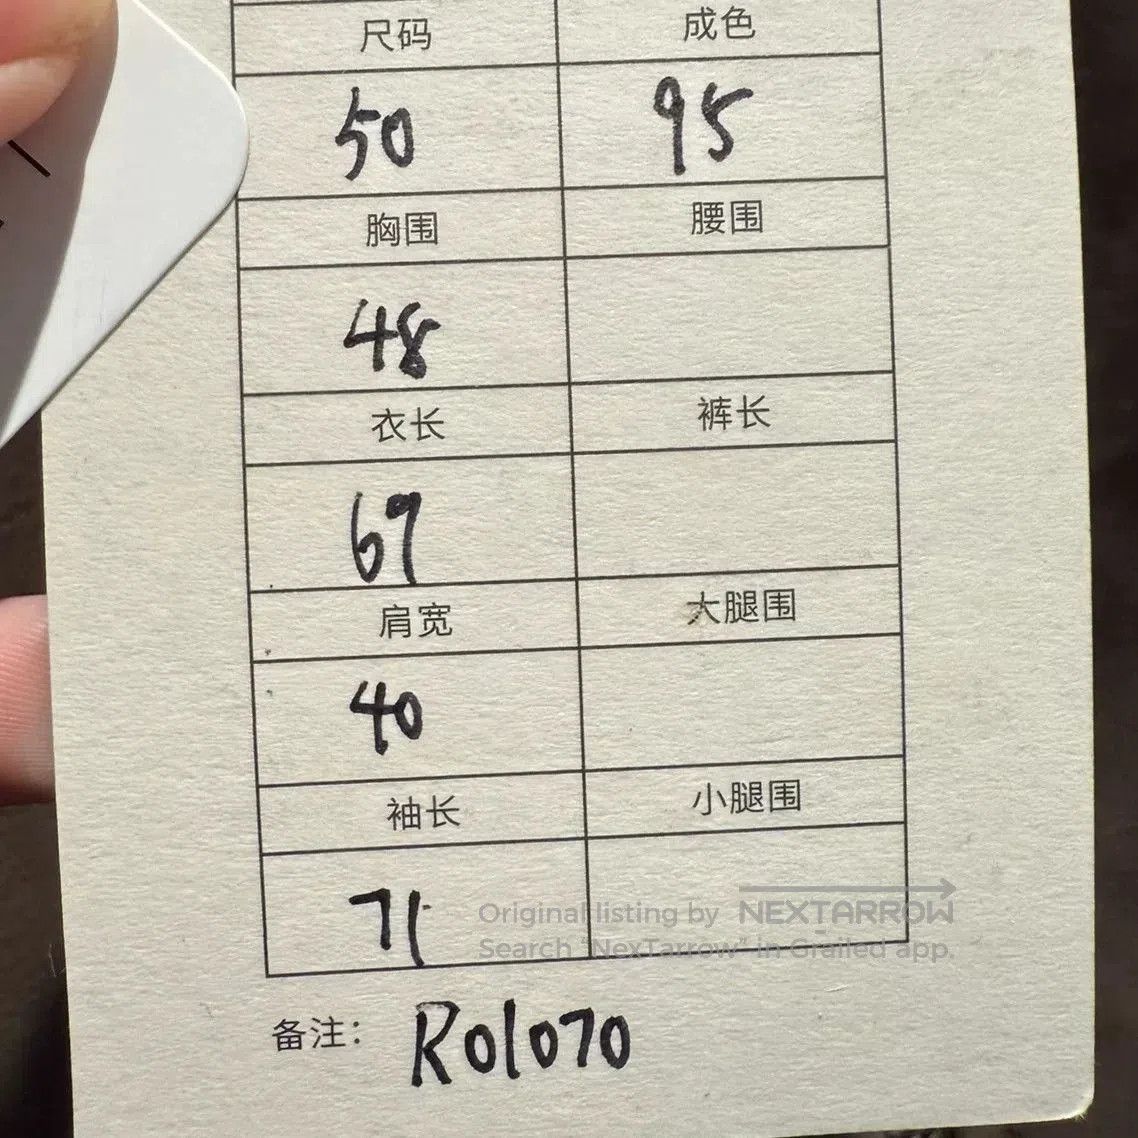 尺码 成色
50 95
胸围 腰围
48
衣长 裤长
69
肩宽 大腿围
40
袖长 小腿围
71
Original listing by NEXTARROW
Search "NexTarrow" in Grailed app.
备注: R01070